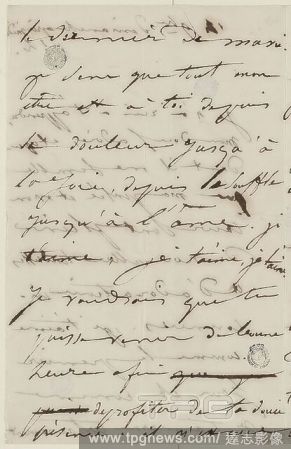 le dernier de mari
je sens que tout mon
être est à toi depuis
la douleur jusqu'à
la joie, depuis le souffle
jusqu'à l'âme. je
t'aime, je t'aime, je t'aime.
Je voudrais que tu
puisse venir de bonne
heure afin que
de profiter de ta douce
présence
TPG
www.tpgnews.com/ 達志影像